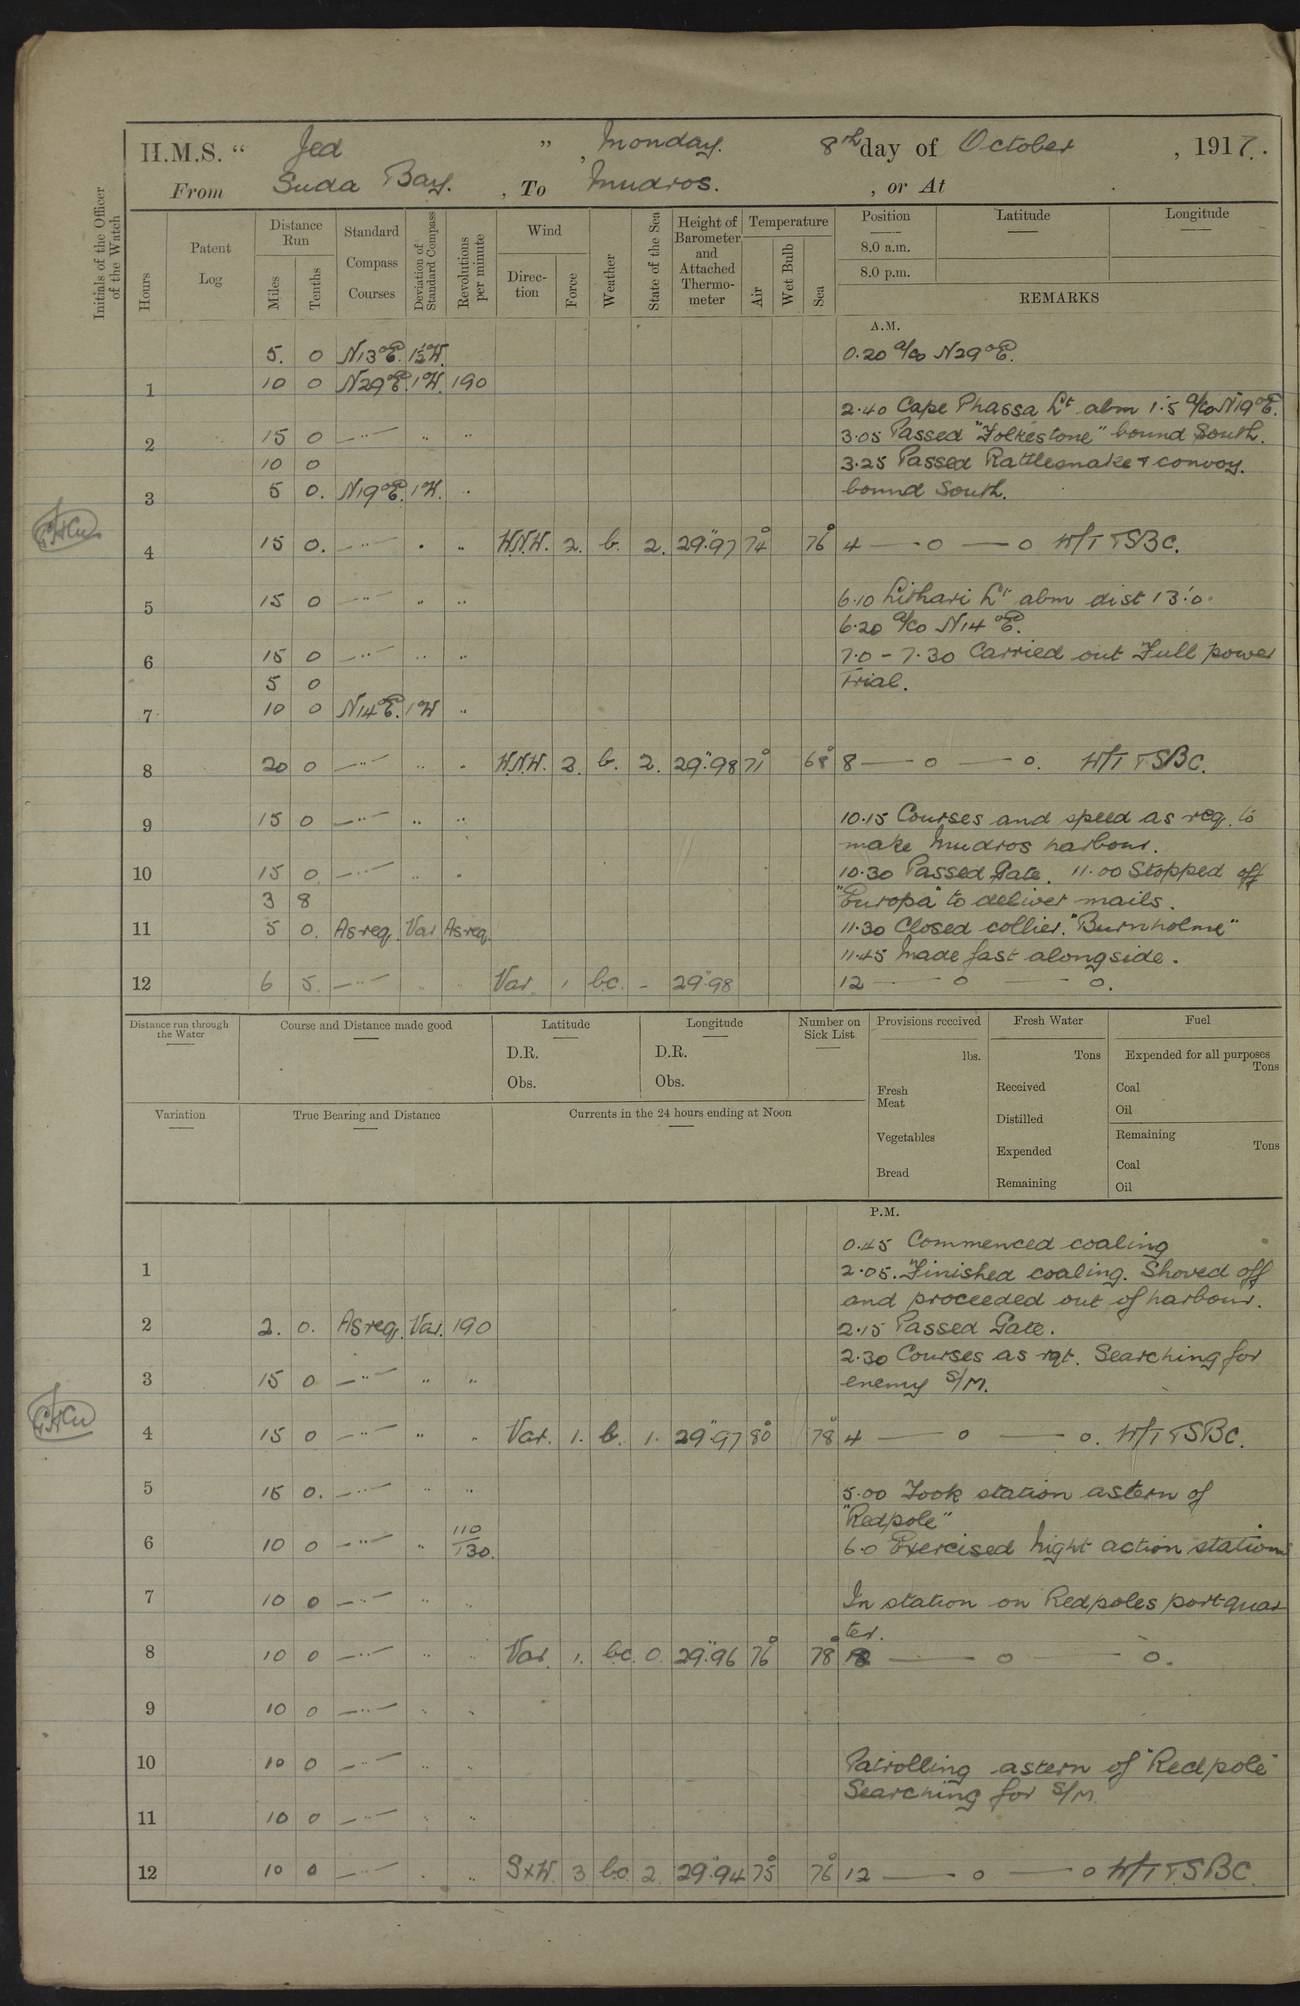 H.M.S. " Jed " , Monday. 8th day of October , 1917.
From Suda Bay. , To Mudros. , or At
Initials of the Officer of the Watch
Hours
Patent Log
Distance Run
Miles
Tenths
Standard Compass Courses
Deviation of Standard Compass
Revolutions per minute
Wind
Direction
Force
Weather
State of the Sea
Height of Barometer and Attached Thermometer
Temperature
Air
Wet Bulb
Sea
Position
Latitude
Longitude
8.0 a.m.
8.0 p.m.
REMARKS
A.M.
5. 0 N13°E. 1½W. 0.20 a/co N29°E.
1 10 0 N29°E. 1°W. 190
2.40 Cape Phassa Lt abm 1'.5 a/co N19°E.
2 15 0 —"— " " 3.05 Passed "Folkestone" bound South.
10 0 3.25 Passed Rattlesnake & convoy.
3 5 0. N19°E. 1°W. " bound South.
4 15 0. —"— " " W.N.W. 2. b. 2. 29".97 74° 76° 4 — o — o W/T TSBC.
5 15 0 —"— " " 6.10 Lithari Lt abm dist 13'.0.
6.20 a/co N14°E.
6 15 0 —"— " " 7.0 - 7.30 Carried out Full power
5 0 Trial.
7 10 0 N14°E. 1°W "
8 20 0 —"— " " W.N.W. 2. b. 2. 29".98 71° 68° 8 — o — o. W/T TSBC.
9 15 0 —"— " " 10.15 Courses and speed as req. to
make Mudros harbour.
10 15 0 —"— " " 10.30 Passed Gate. 11.00 Stopped off
3 8 "Europa" to deliver mails.
11 5 0. As req. Var As req. 11.30 Closed collier. "Burnholme"
11.45 Made fast alongside.
12 6 5. —"— " " Var. 1 bc. - 29".98 12 — o — o.
Distance run through the Water
Course and Distance made good
Latitude
D.R.
Obs.
Longitude
D.R.
Obs.
Number on Sick List
Variation
True Bearing and Distance
Currents in the 24 hours ending at Noon
Provisions received
lbs.
Fresh Meat
Vegetables
Bread
Fresh Water
Tons
Received
Distilled
Expended
Remaining
Fuel
Expended for all purposes
Tons
Coal
Oil
Remaining
Tons
Coal
Oil
P.M.
0.45 Commenced coaling
1 2.05. Finished coaling. Shoved off
and proceeded out of harbour.
2 2. 0. As req. Var. 190 2.15 Passed Gate.
2.30 Courses as rqt. Searching for
3 15 0 —"— " " enemy S/M.
4 15 0 —"— " " Var. 1. b. 1. 29".97 80° 78° 4 — o — o. W/T TSBC.
5 15 0. —"— " " 5.00 Took station astern of
"Redpole"
6 10 0 —"— " 110/130. 6.0 Exercised night action stations
7 10 0 —"— " " In station on Redpoles port quar-
ter.
8 10 0 —"— " " Var. 1. bc. 0. 29".96 76° 78° 8 — o — o.
9 10 0 —"— " "
10 10 0 —"— " " Patrolling astern of "Redpole"
Searching for S/M.
11 10 0 —"— " "
12 10 0 —"— " " SxW. 3 bc. 2. 29".94 75° 76° 12 — o — o W/T TSBC.